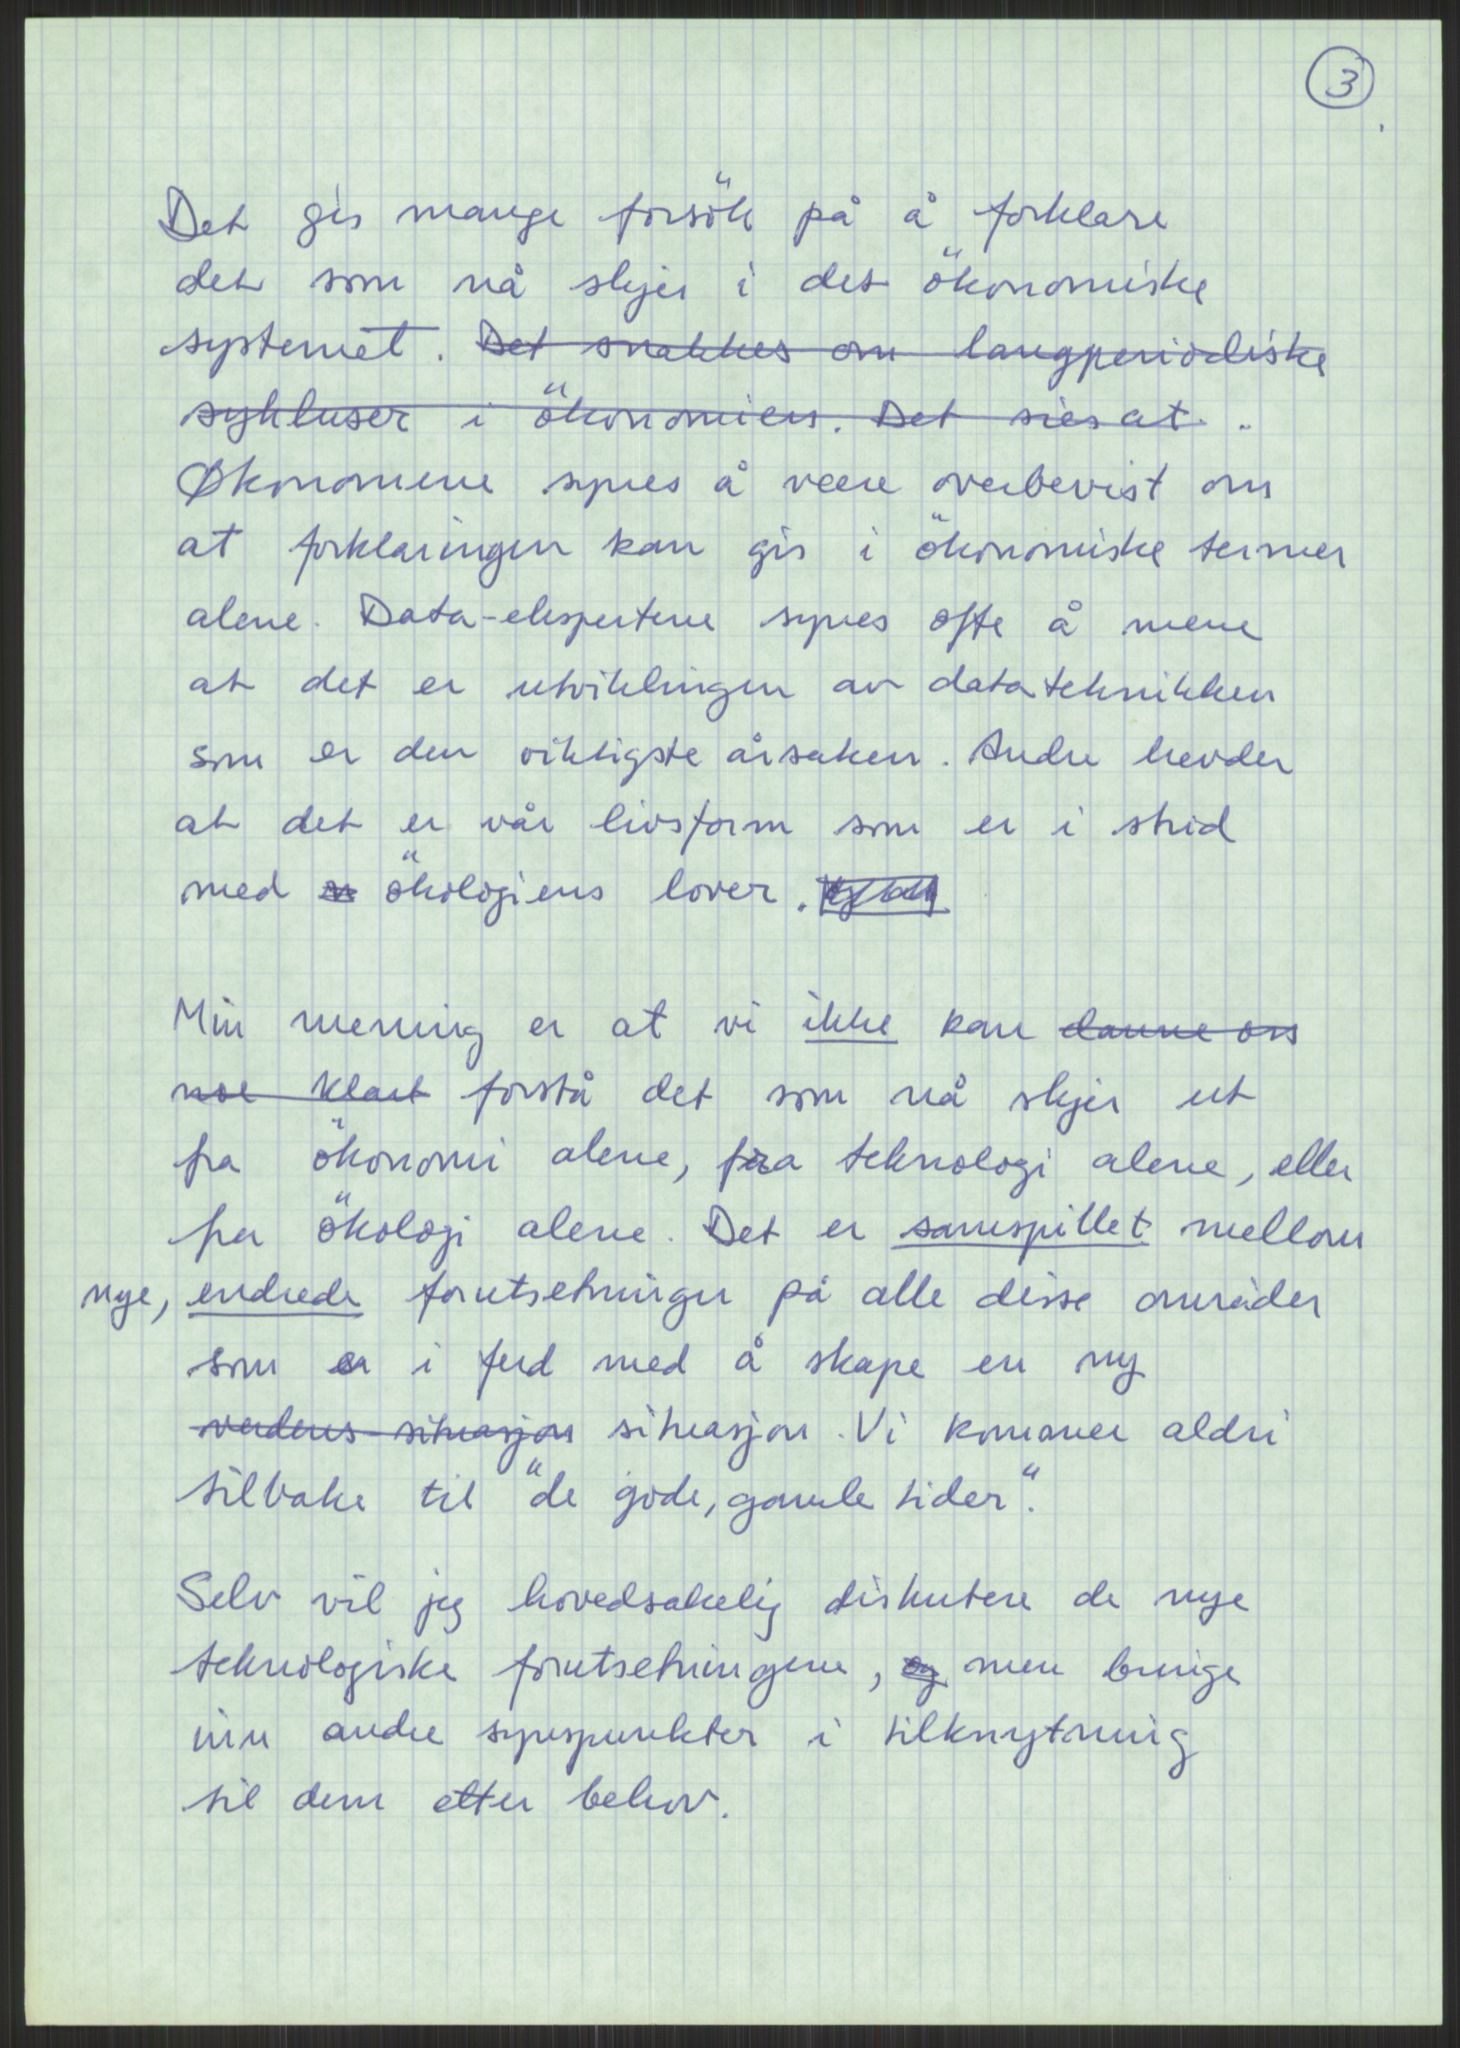 3
Det gis mange forsök på å forklare
det som nå skjer i det ökonomiske
systemet. Det snakkes om langperiodiske
sykluser i ökonomien. Det sies at.
Økonomene synes å være overbevist om
at forklaringen kan gis i ökonomiske termer
alene. Data-ekspertene synes ofte å mene
at det er utviklingen av datateknikken
som er den viktigste årsaken. Andre hevder
at det er vår livsform som er i strid
med ökologiens lover.
Min mening er at vi ikke kan danne oss
noe klart forstå det som nå skjer ut
fra ökonomi alene, fra teknologi alene, eller
fra ökologi alene. Det er samspillet mellom
nye, endrede forutsetninger på alle disse områder
som er i ferd med å skape en ny
verdens-situasjon situasjon. Vi kommer aldri
tilbake til "de gode, gamle tider".
Selv vil jeg hovedsakelig diskutere de nye
teknologiske forutsetningene, og men bringe
inn andre synspunkter i tilknytning
til dem etter behov.